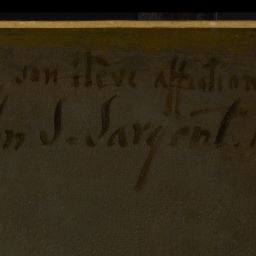 son élève affection
hn S. Sargent.